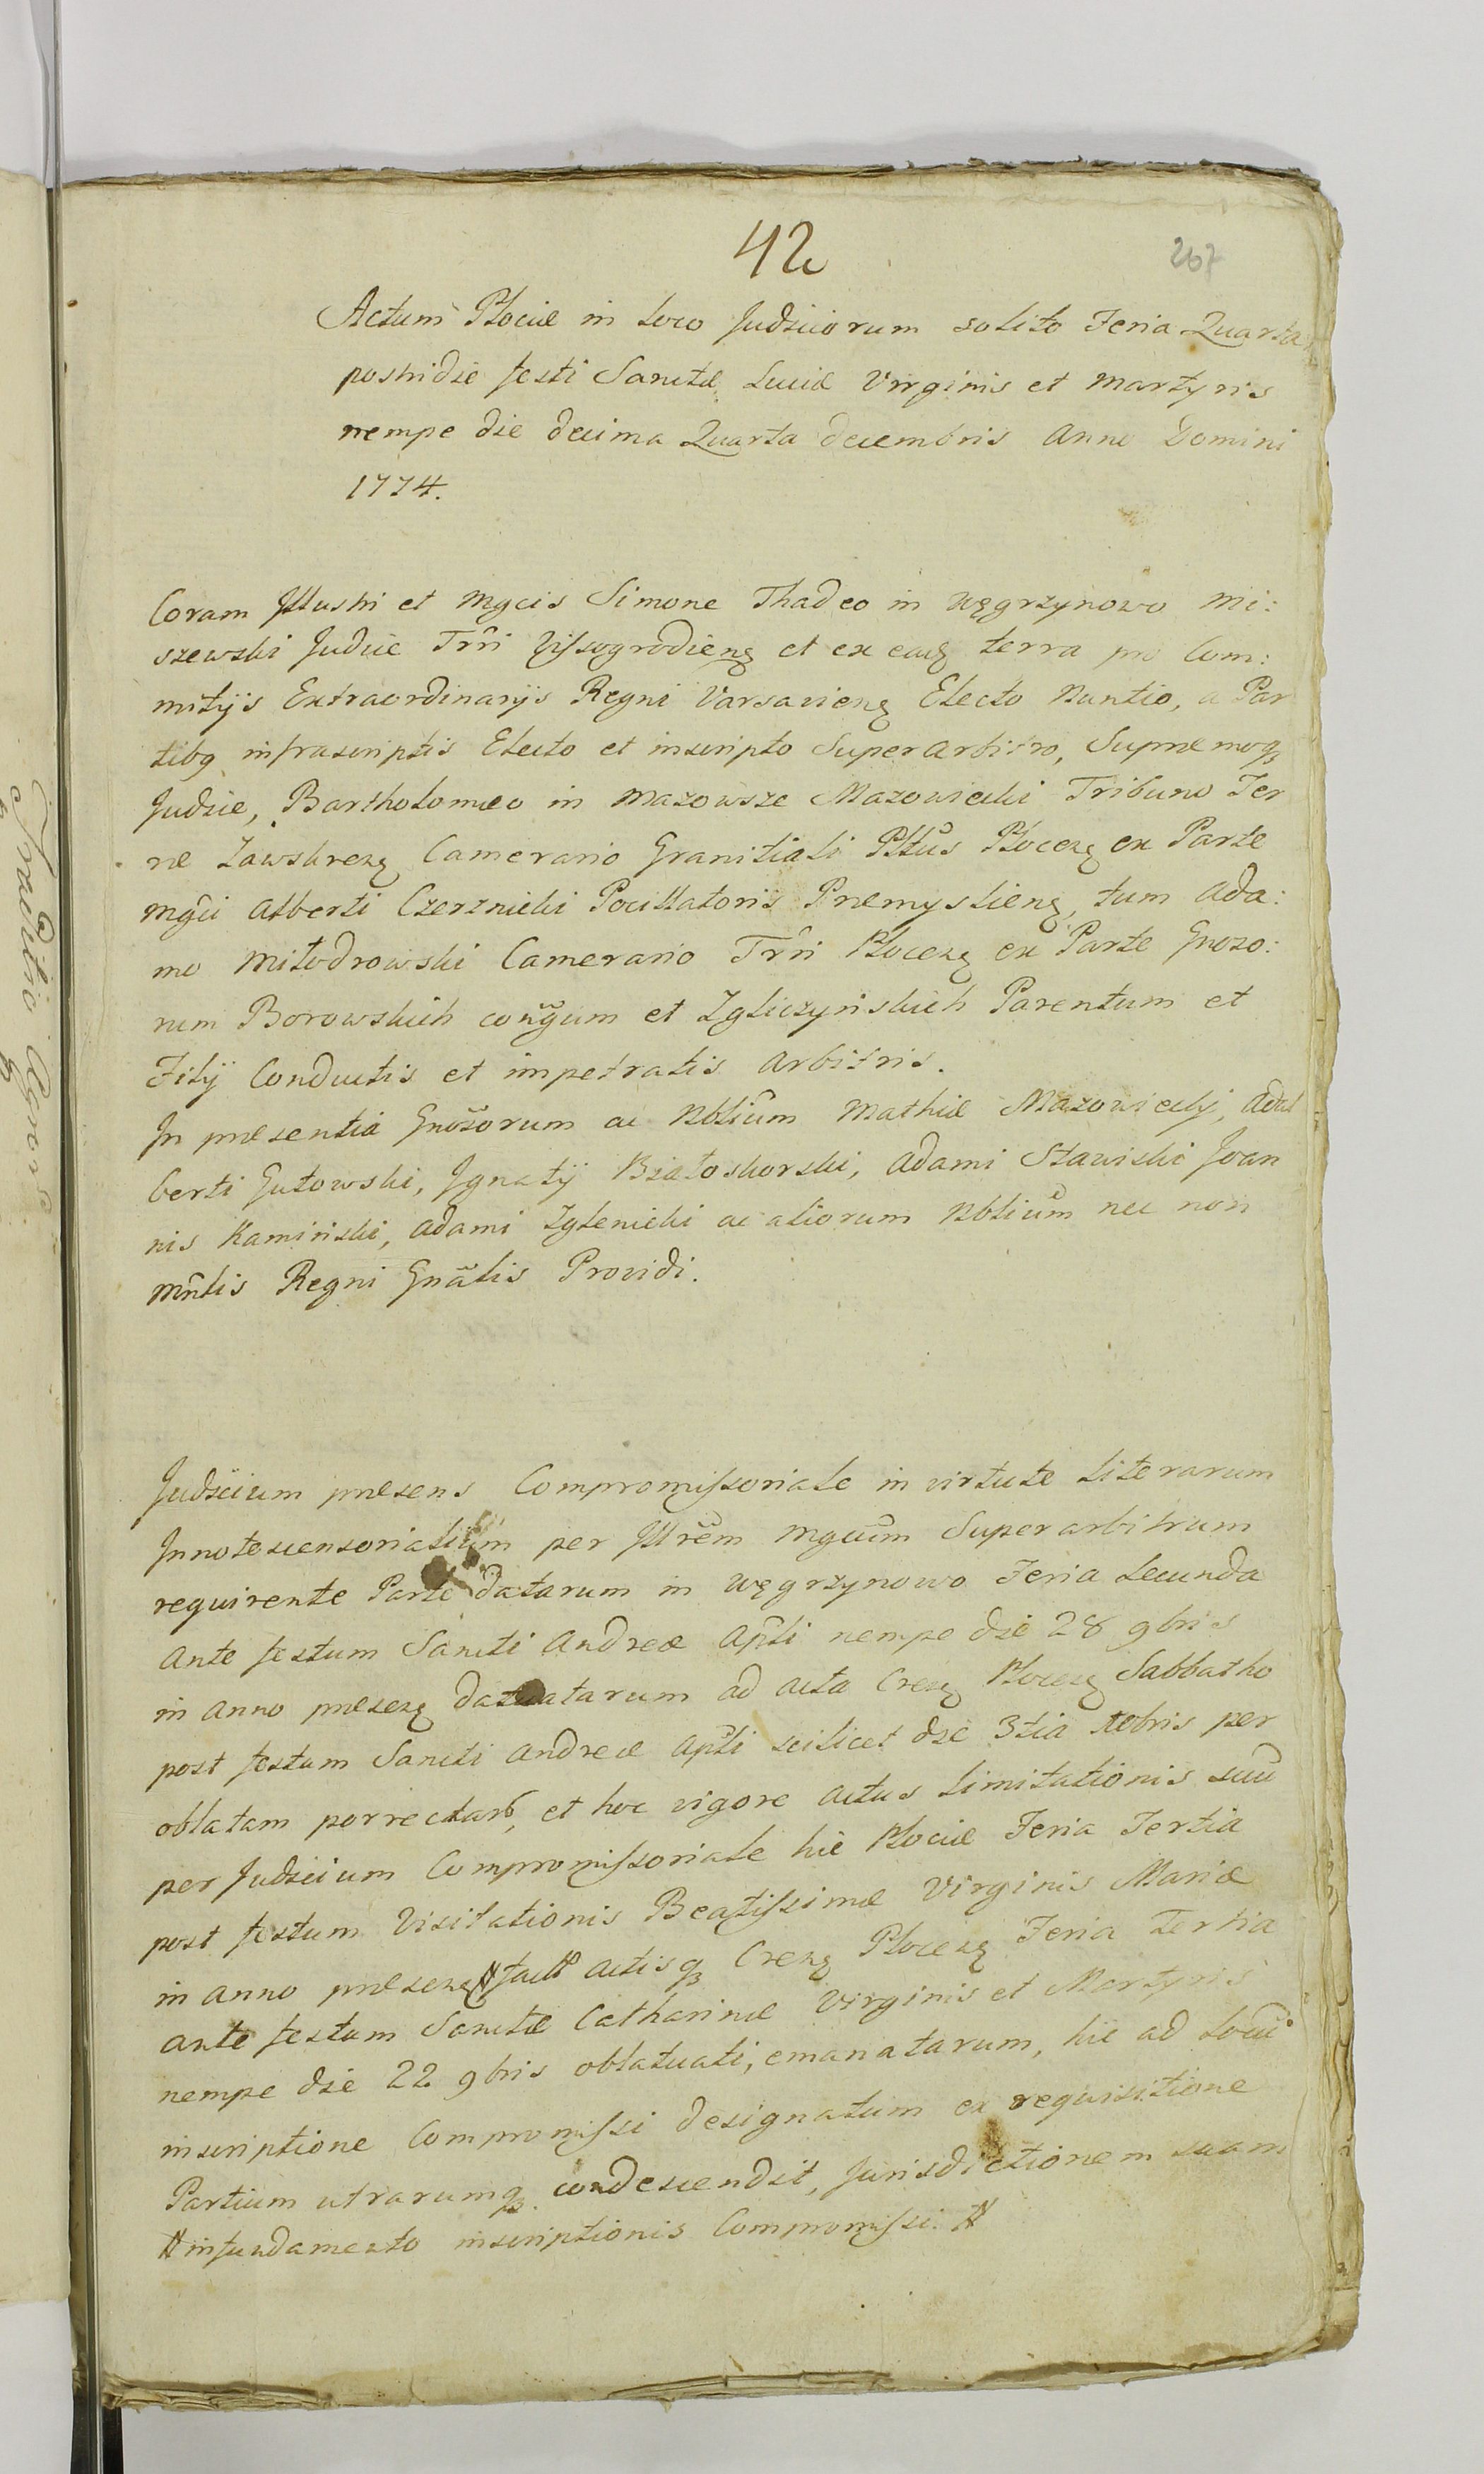 42
267
Actum Płociæ in Loco Judiciorum solito Feria Quarta
postridie festi Sanctæ Luciæ Virginis et Martyris
nempe die decima Quarta decembris Anno Domini
1774.
Coram Jllustri et Mgcis Simone Thadeo in Węgrzynowo Mi:
szewski Judice Trri Vissogrodieng et ex eadg terra pro Com:
mitijs Extraordinarijs Regni Varsavieng Electo Nuntio, a Par
tibg infrascriptis Electo et inscripto Superarbitro, Supremoqz
Judice, Bartholomæo in Mazowsze Mazowiecki Tribuno Ter
ræ Zawskreng Camerario Granitiali Pltũs Płoceng ex Parte
Mgci Alberti Czernicki Pocillatoris Premyslieng, tum Ada:
mo Miłodrowski Camerario Trri Płoceng ex Parte Gnoso:
rum Borowskich cõngum et Zgliczyńskich Parentum et
Filij Conductis et impetratis Arbitris.
Jn præsentia Gnosorum ac Nblium Mathiæ Mazowieckj, Adal
berti Gutowski, Jgnatij Białoskorski, Adami Stawiski Joan
nis Kamiński, Adami Zglenicki ac aliorum Nblium nec non
Mnlis Regni Gnãlis Providi.
Judicium præsens Compromissoriale in virtute Literarum
Jnnotescensorialium per Jllrem Mgcum Superarbitrum
requirente Parte datarum in Węgrzynowo Feria Secunda
Ante festum Sancti Andreæ Apli nempe die 28 9bris
in Anno præseng datarum ad acta Creng Płoceng Sabbatho
post festum Sancti Andreæ Apli scilicet die 3tia Xbris per
oblatam porrectarũ, et hoc vigore actus Limitationis suũ
per Judicium Compromissoriale hic Płociæ Feria Tertia
post festum Visitationis Beatissimæ Virginis Mariæ
in Anno præseng # facti actisqz Creng Płoceng Feria Tertia
ante festum Sanctæ Catharinæ Virginis et Martyris
nempe die 22 9bris oblatuati, emanatarum, hic ad Locũ
inscriptione Compromissi designatum ex requisitione
Partium utrarumqz condescendit, Jurisdictionem suam
# in fundamento inscriptionis Compromissi. #